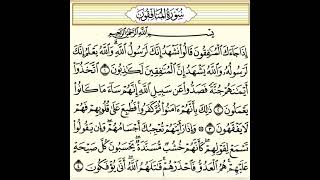 سُورَةُ المُنَافِقُونَ
بِسْمِ اللَّهِ الرَّحْمَٰنِ الرَّحِيمِ
إِذَا جَاءَكَ الْمُنَافِقُونَ قَالُوا نَشْهَدُ إِنَّكَ لَرَسُولُ اللَّهِ وَاللَّهُ يَعْلَمُ إِنَّكَ
لَرَسُولُهُ وَاللَّهُ يَشْهَدُ إِنَّ الْمُنَافِقِينَ لَكَاذِبُونَ ١ اتَّخَذُوا
أَيْمَانَهُمْ جُنَّةً فَصَدُّوا عَن سَبِيلِ اللَّهِ إِنَّهُمْ سَاءَ مَا كَانُوا
يَعْمَلُونَ ٢ ذَٰلِكَ بِأَنَّهُمْ آمَنُوا ثُمَّ كَفَرُوا فَطُبِعَ عَلَىٰ قُلُوبِهِمْ فَهُمْ
لَا يَفْقَهُونَ ٣ وَإِذَا رَأَيْتَهُمْ تُعْجِبُكَ أَجْسَامُهُمْ وَإِن يَقُولُوا
تَسْمَعْ لِقَوْلِهِمْ كَأَنَّهُمْ خُشُبٌ مُّسَنَّدَةٌ يَحْسَبُونَ كُلَّ صَيْحَةٍ
عَلَيْهِمْ هُمُ الْعَدُوُّ فَاحْذَرْهُمْ قَاتَلَهُمُ اللَّهُ أَنَّىٰ يُؤْفَكُونَ ٤